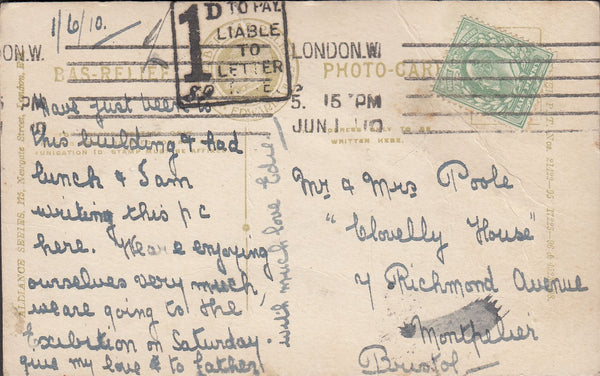 1/6/10.
1D TO PAY
LIABLE
TO
LETTER
LONDON.W.
LONDON.W
5. 15 PM
JUN 1 10
BAS-RELIEF
PHOTO-CARD
WRITTEN HERE.
ALLIANCE SERIES, 115, Newgate Street, London, E.C.
Have just been to
this building & had
lunch & I am
writing this p c
here. We are enjoying
ourselves very much
we are going to the
Exibition on Saturday.
give my love & to father
with much love Edie
Mr & Mrs Poole
"Clovelly House"
7 Richmond Avenue
Montpelier
Bristol